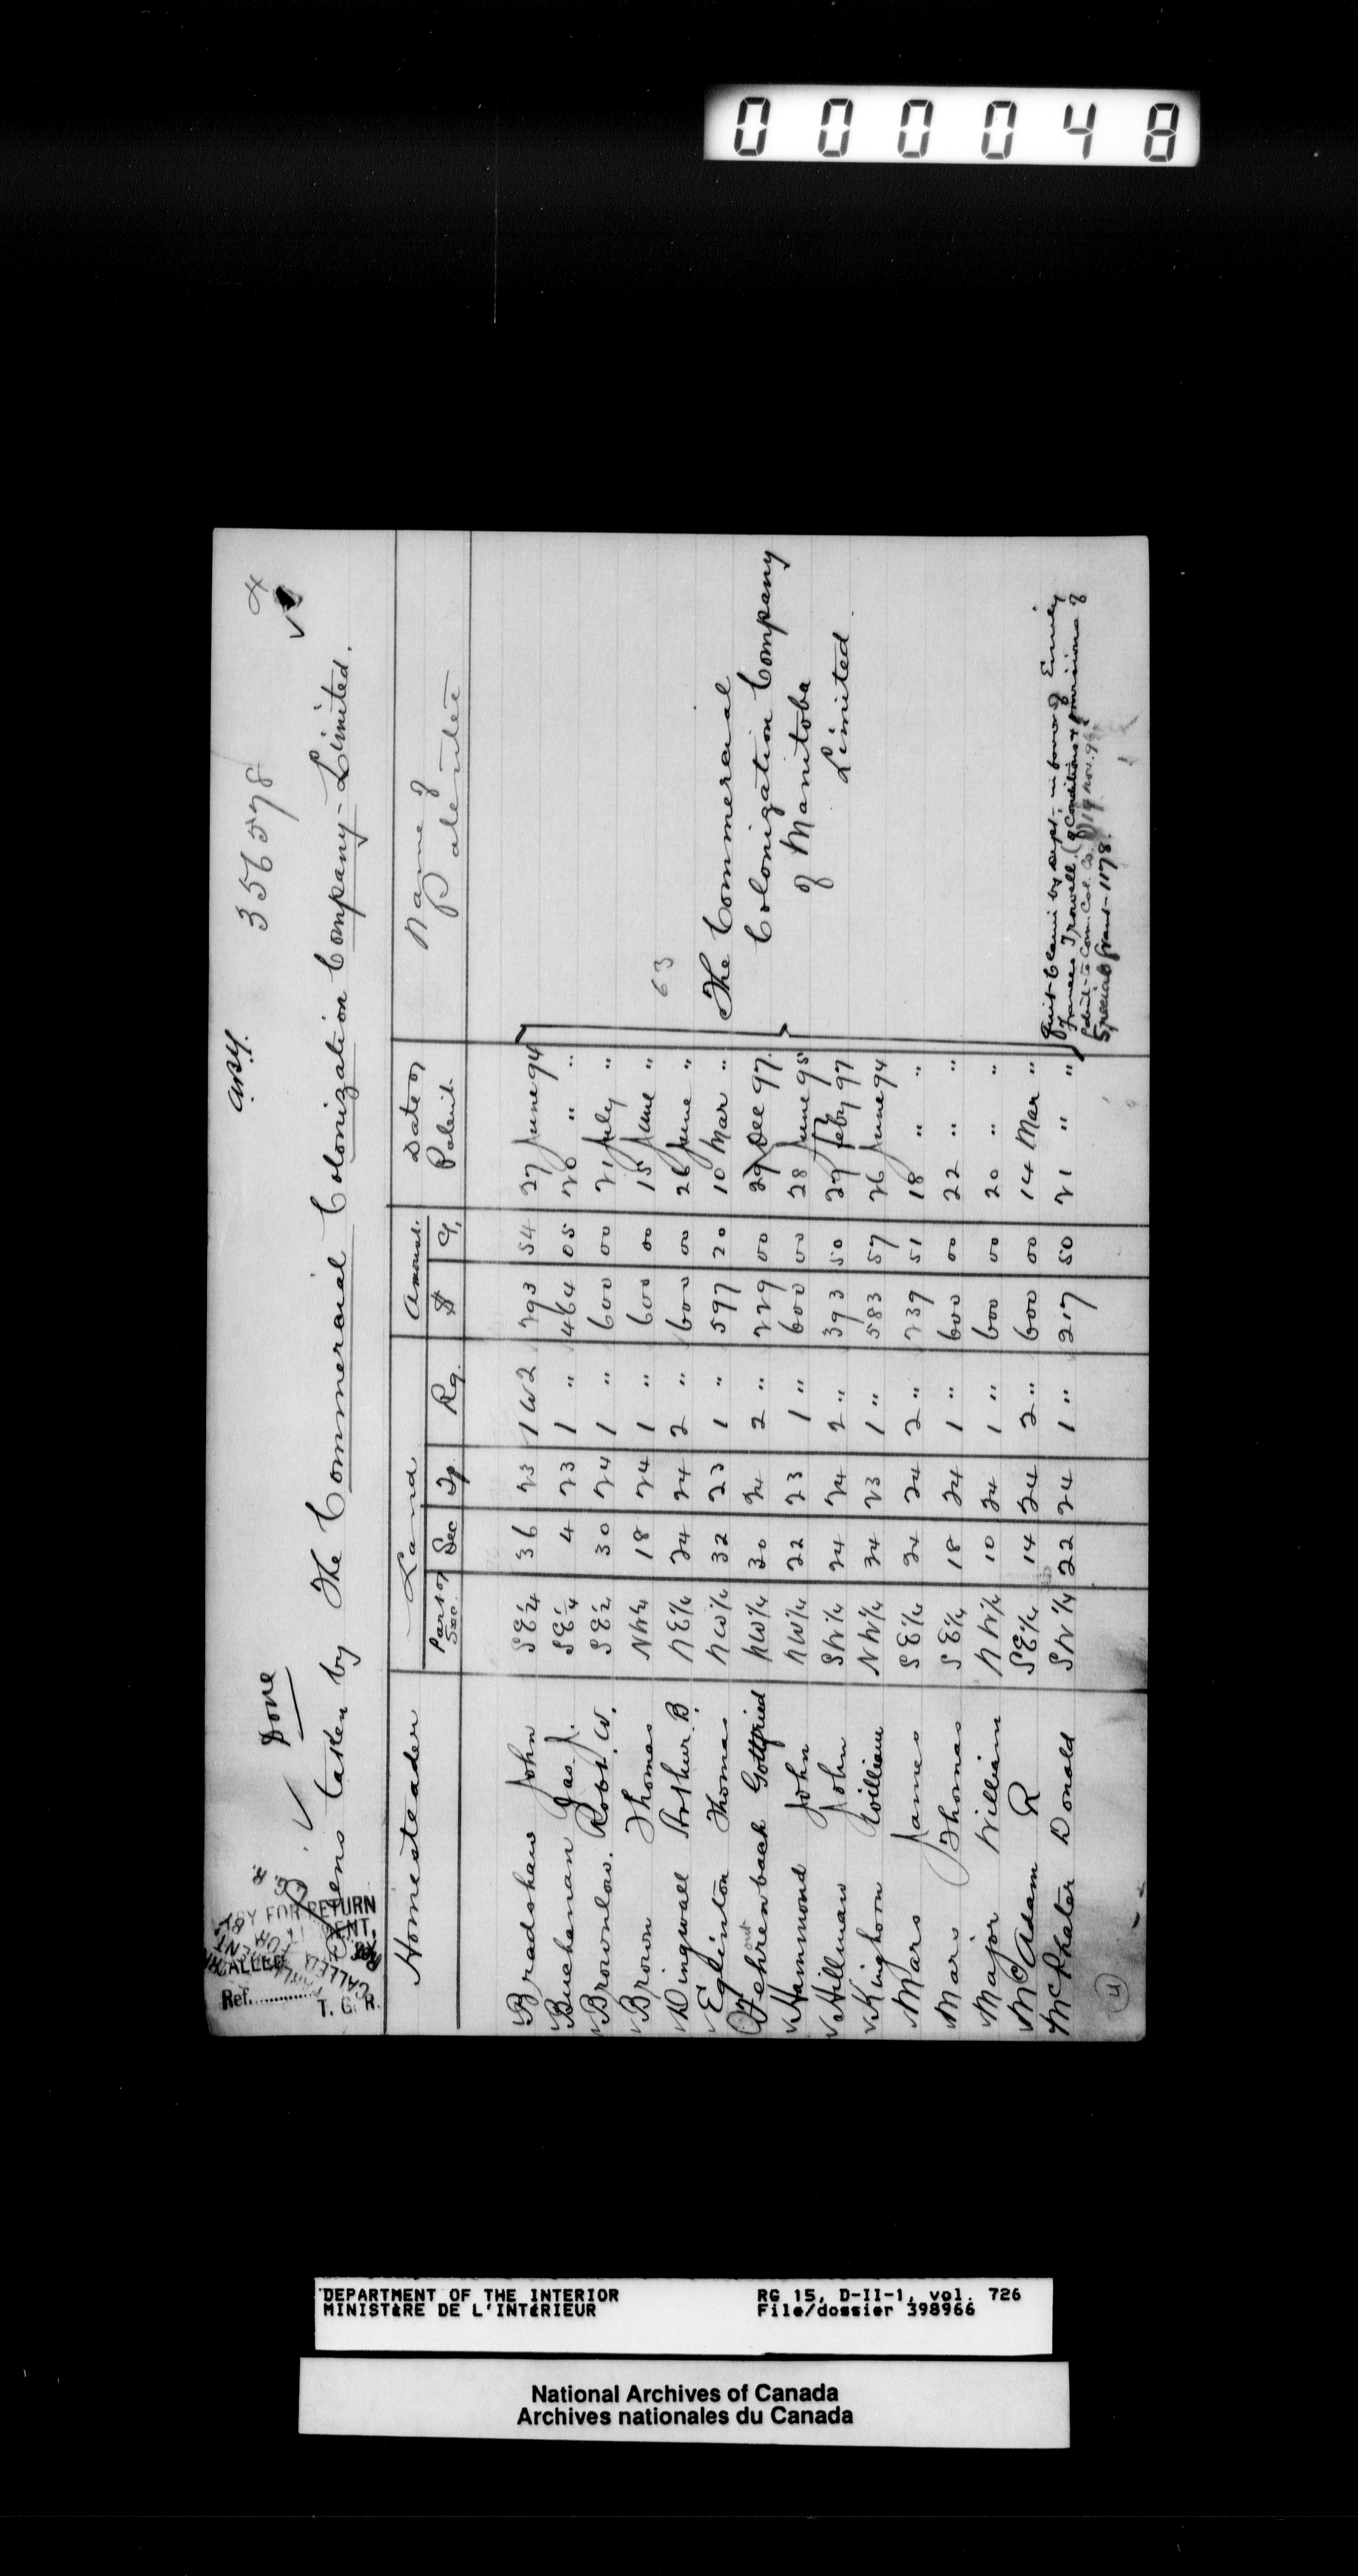 000048
ary. 356578 4
✓ Done
Liens taken by The Commercial Colonization Company Limited.
CALLED
BY FOR RETURN
Ref.............. T. G. R.
Homesteader Land Amount. Date of Patent. Name of Patentee
Part of Sec. Sec Tp. Rg. $ c.
Bradshaw John SE¼ 36 23 1 W2 293 54 27 June 94
Buchanan Jas. J. SE¼ 4 23 1 " 464 05 20 " "
Brownlow. Robt. W. SE¼ 30 24 1 " 600 00 21 July "
Brown Thomas NW¼ 18 24 1 " 600 00 15 June "
Dingwall Arthur. B. NE¼ 24 24 2 " 600 00 26 June "
Eglinton Thomas NW¼ 32 23 1 " 597 20 10 Mar "
Fehrenback Gottfried NW¼ 30 24 2 " 229 00 29 Dec 97.
Hammond John NW¼ 22 23 1 " 600 00 28 June 95
Hillman John SW¼ 24 24 2 " 393 50 27 Feby 97
Kinghorn William NW¼ 34 23 1 " 583 57 26 June 94
Mars James SE¼ 24 24 2 " 239 51 18 " "
Mars Thomas SE¼ 18 24 1 " 600 00 22 " "
Major William NW¼ 10 24 1 " 600 00 20 " "
McAdam R SE¼ 14 24 2 " 600 00 14 Mar "
McPhater Donald SW¼ 22 24 1 " 217 50 21 " "
63
The Commercial
Colonization Company
of Manitoba
Limited.
Quit Claim by Dept. in favor of Emily
Frances Trowell, (Conditions & provisions of
Patent to Com. Col. Co.) 19 Nov. 96.
Special Grant - 1178.
4
DEPARTMENT OF THE INTERIOR RG 15, D-II-1, vol. 726
MINISTÈRE DE L'INTÉRIEUR File/dossier 398966
National Archives of Canada
Archives nationales du Canada